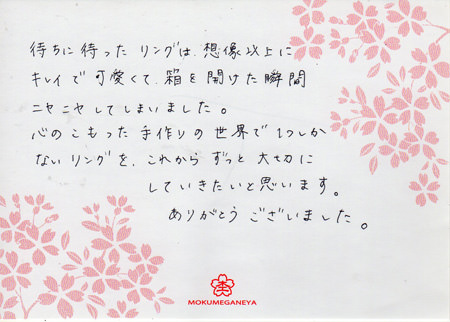 待ちに待ったリングは、想像以上に
キレイで可愛くて、箱を開けた瞬間
ニヤニヤしてしまいました。
心のこもった手作りの世界で1つしか
ないリングを、これからずっと大切に
していきたいと思います。
ありがとうございました。
MOKUMEGANEYA